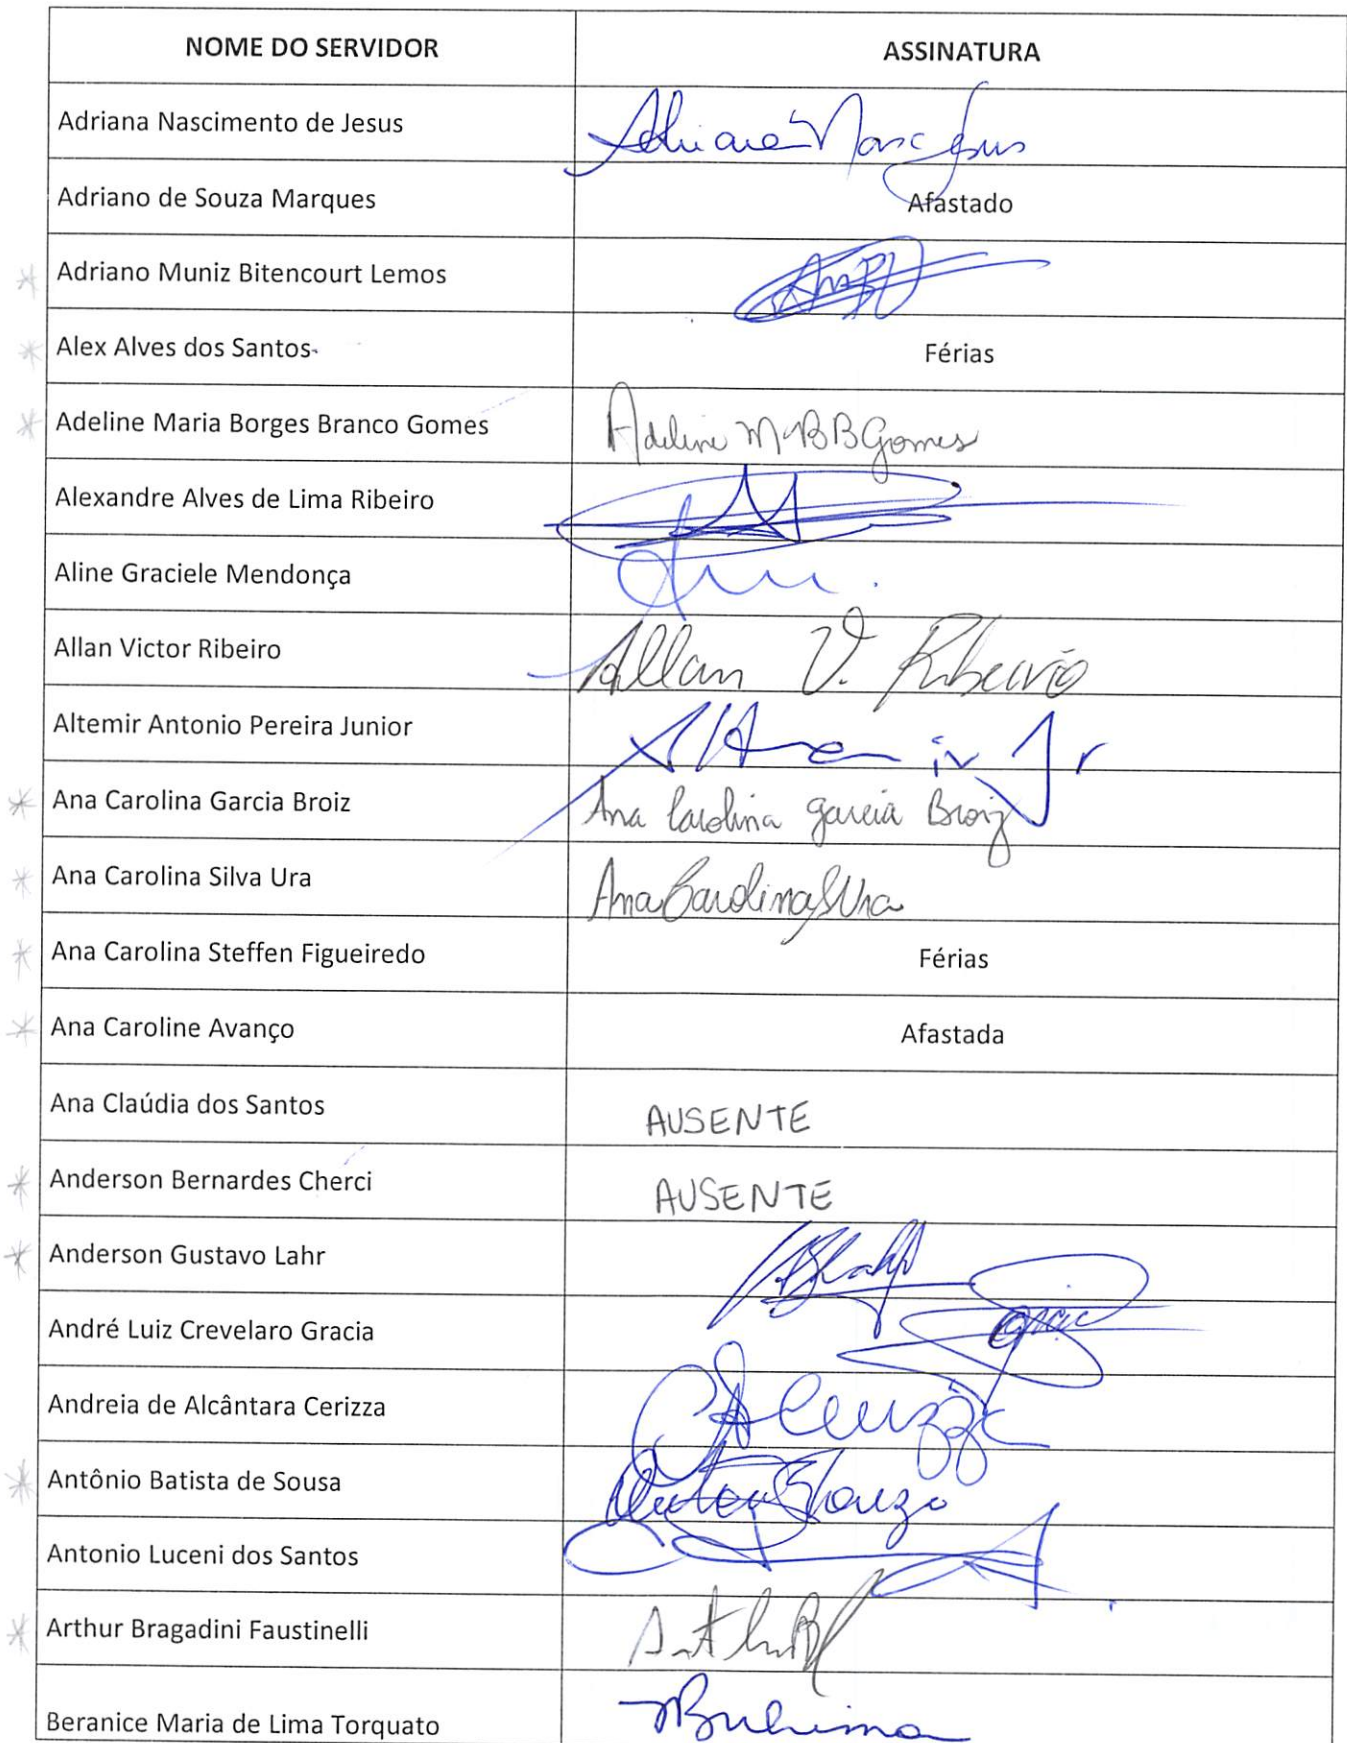 NOME DO SERVIDOR ASSINATURA
Adriana Nascimento de Jesus
Adriano de Souza Marques Afastado
Adriano Muniz Bitencourt Lemos
Alex Alves dos Santos Férias
Adeline Maria Borges Branco Gomes Adeline M BB Gomes
Alexandre Alves de Lima Ribeiro
Aline Graciele Mendonça
Allan Victor Ribeiro Allan V. Ribeiro
Altemir Antonio Pereira Junior
Ana Carolina Garcia Broiz Ana Carolina Garcia Broiz
Ana Carolina Silva Ura Ana Carolina S Ura
Ana Carolina Steffen Figueiredo Férias
Ana Caroline Avanço Afastada
Ana Claúdia dos Santos AUSENTE
Anderson Bernardes Cherci AUSENTE
Anderson Gustavo Lahr
André Luiz Crevelaro Gracia
Andreia de Alcântara Cerizza
Antônio Batista de Sousa
Antonio Luceni dos Santos
Arthur Bragadini Faustinelli
Beranice Maria de Lima Torquato